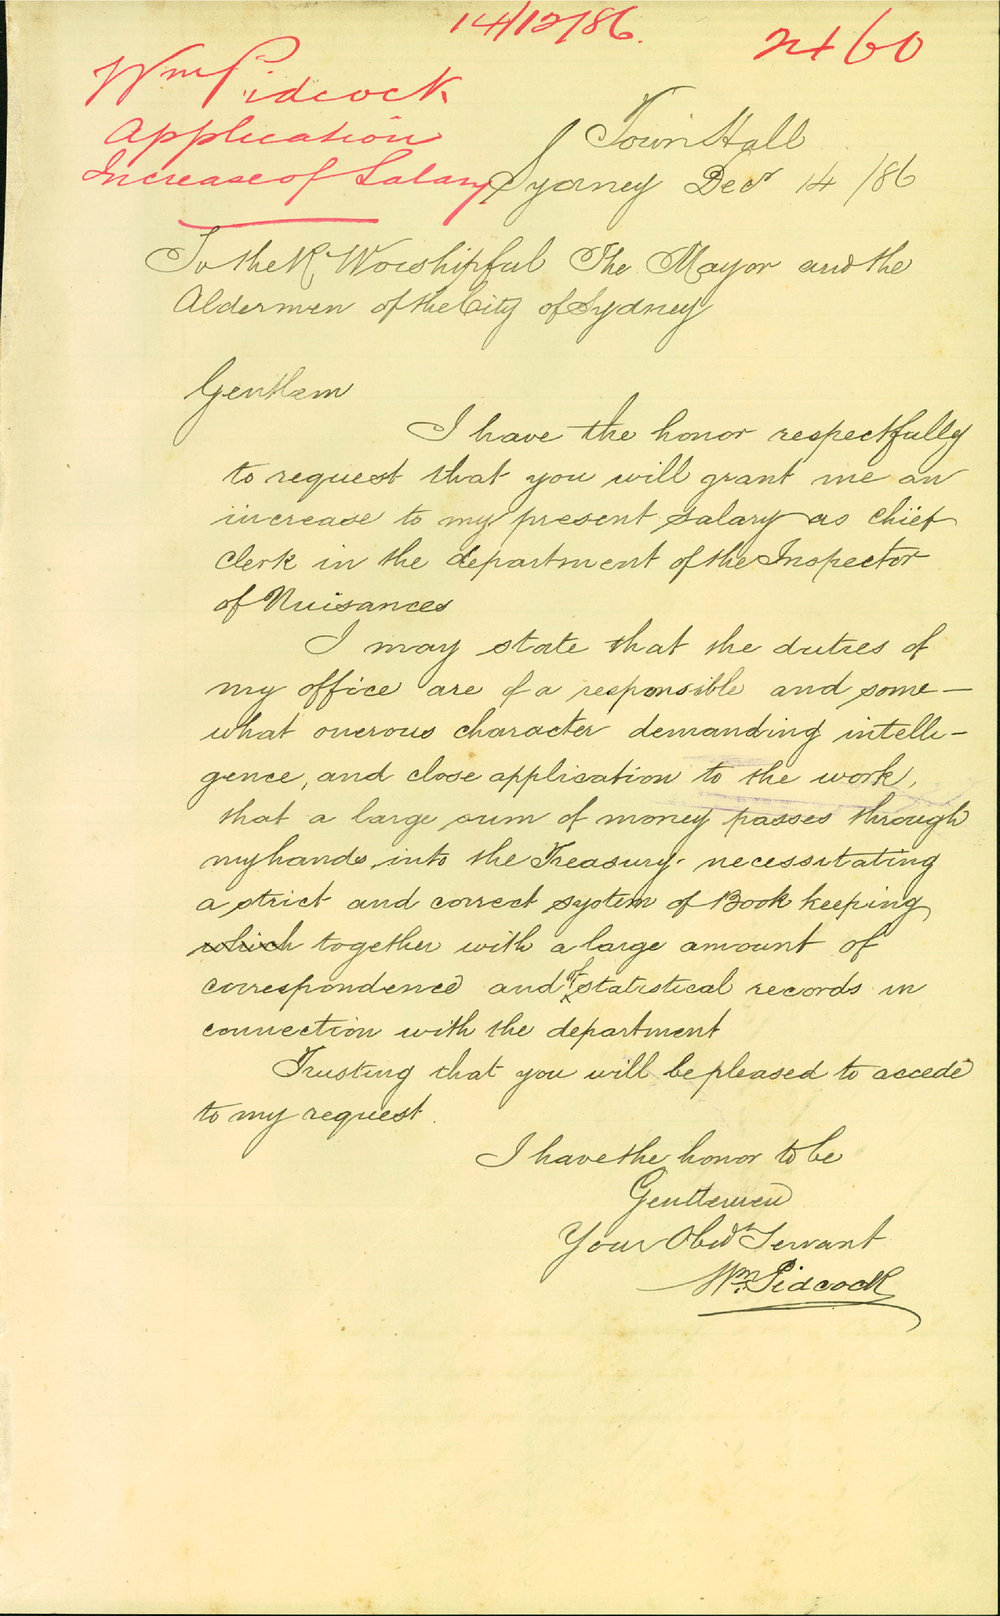 14/12/86.
2460
Wm Pidcock
Application
Increase of Salary
Town Hall
Sydney Decr 14/86
To the R. Worshipful The Mayor and the
Aldermen of the City of Sydney
Gentlem
I have the honor respectfully
to request that you will grant me an
increase to my present salary as chief
clerk in the department of the Inspector
of Nuisances
I may state that the duties of
my office are of a responsible and some-
what onerous character demanding intelli-
gence, and close application to the work,
that a large sum of money passes through
my hands into the Treasury. necessitating
a strict and correct system of Book keeping
which together with a large amount of
correspondence and of statistical records in
connection with the department
Trusting that you will be pleased to accede
to my request.
I have the honor to be
Gentlemen
Your Obedt Servant
Wm. Pidcock